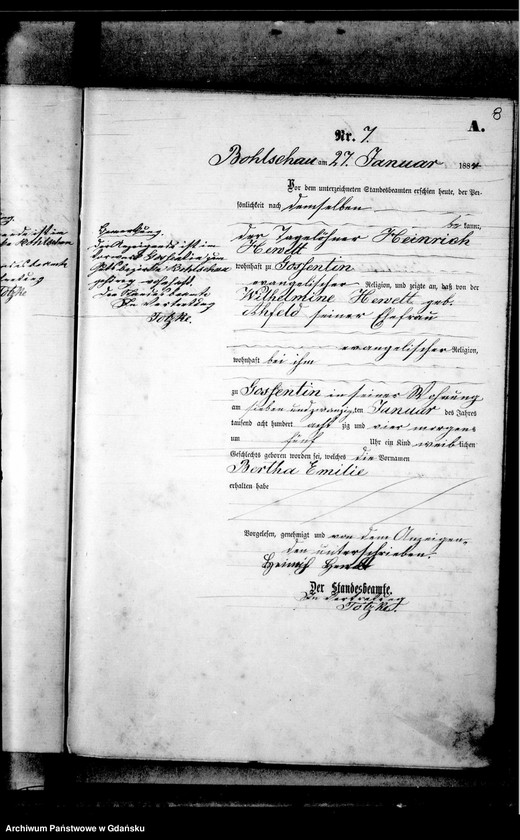 8
A.
Nr. 7.
Bohlschau am 27. Januar 1884
Vor dem unterzeichneten Standesbeamten erschien heute, der Per-
sönlichkeit nach demselben
be kannt,
der Tagelöhner Heinrich
Hewelt
wohnhaft zu Gossentin
evangelischer Religion, und zeigte an, daß von der
Wilhelmine Hewelt geb.
seiner Ehefrau
evangelischer Religion,
wohnhaft bei ihm
zu Gossentin in seiner Wohnung
am sieben und zwanzig ten Januar des Jahres
tausend acht hundert acht zig und vier morgens
um fünf Uhr ein Kind weib lichen
Geschlechts geboren worden sei, welches die Vornamen
Bertha Emilie
erhalten habe
Vorgelesen, genehmigt und von dem Anzeigen-
den unterschrieben.
Heinrich
Der Standesbeamte.
In Vertretung
Totzke.
Bemerkung.
Der Anzeigende ist im
Vorwerk Gossentin zum
Gutsbezirke Bohlschau
gehörig wohnhaft.
Der Standesbeamte.
In Vertretung
Totzke.
Archiwum Państwowe w Gdańsku